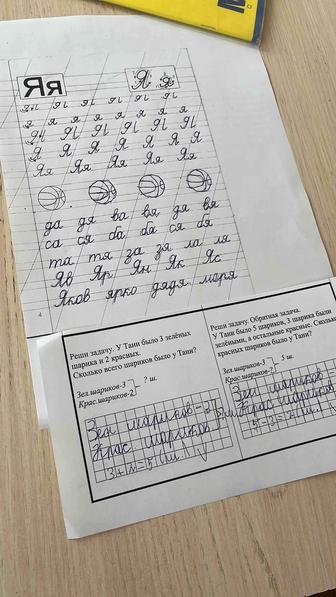 Яя Я я
я я я я я я я
Я Я Я Я Я Я
Яя Яя Яя Яя Яя
да дя ва вя дя вя
са ся ба ба ся бя
та тя за зя ла ля
Яв Яр Ян Як Яс
Яков ярко дядя моря
4
Реши задачу. У Тани было 3 зелёных
шарика и 2 красных.
Сколько всего шариков было у Тани?
Зел.шариков-3
? ш.
Крас.шариков-2
Зел шариков - 3
Крас шариков
3+2=5 (ш.)
Реши задачу. Обратная задача.
У Тани было 5 шариков, 3 шарика были
зелёными, а остальные красные. Сколько
красных шариков было у Тани?
Зел.шариков-3
5 ш.
Крас.шариков-?
Зел шариков =
Крас шариков